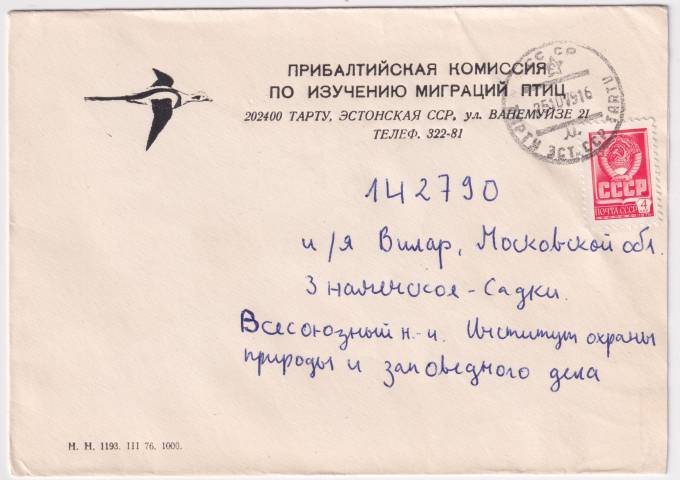 ПРИБАЛТИЙСКАЯ КОМИССИЯ
ПО ИЗУЧЕНИЮ МИГРАЦИЙ ПТИЦ
202400 ТАРТУ, ЭСТОНСКАЯ ССР, ул. ВАНЕМУЙЗЕ 21
ТЕЛЕФ. 322-81
СССР
ТАРТУ ЭСТ. ССР TARTU
СССР
ПОЧТА СССР 4
142790
и/я Вилар, Московской обл.
Знаменское-Садки.
Всесоюзный н.-и. Институт охраны
природы и заповедного дела
Н. Н. 1193. III 76. 1000.